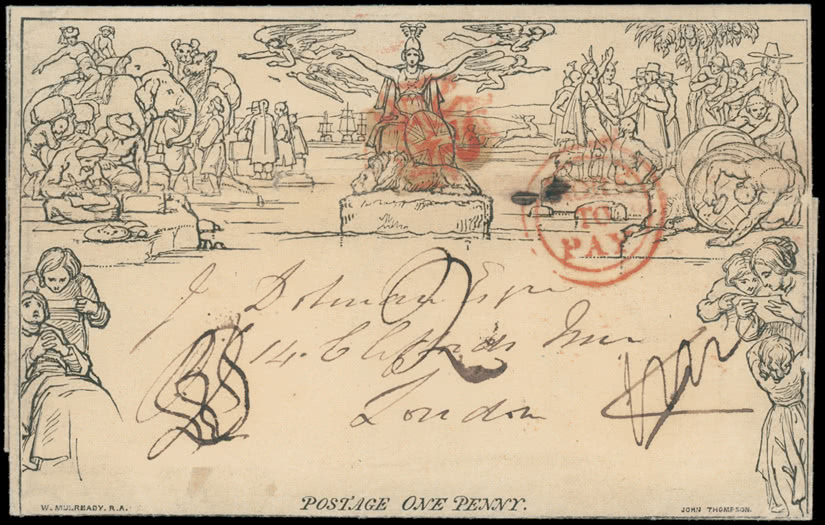 TO
PAY
J. Dolman Esqre
2
14. Cliffords Inn
London
POSTAGE ONE PENNY.
W. MULREADY. R.A.
JOHN THOMPSON.